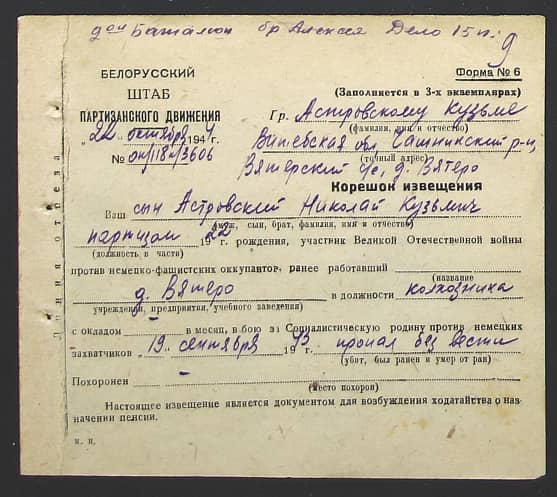 Баталион бр Алексея Дело 15 п. 9
БЕЛОРУССКИЙ
ШТАБ
ПАРТИЗАНСКОГО ДВИЖЕНИЯ
"22" октября 1944 г.
№ 3606
Форма № 6
(Заполняется в 3-х экземплярах)
Гр. Астровскому Кузьме
(фамилия, имя и отчество)
Витебская обл. Сашнинский р-н,
(точный адрес)
Вятерский с/с, д. Вятеро
Корешок извещения
Ваш сын Астровский Николай Кузьмич
(муж, сын, брат, фамилия, имя и отчество)
партизан 1922 г. рождения, участник Великой Отечественной войны
(должность в части)
против немецко-фашистских оккупантов, ранее работавший
(название
д. Вятеро в должности колхозника
учреждения, предприятия, учебного заведения)
с окладом в месяц, в бою за Социалистическую родину против немецких
захватчиков 19 сентября 1943 г. пропал без вести
(убит, был ранен и умер от ран)
Похоронен —
(место похорон)
Настоящее извещение является документом для возбуждения ходатайства о наз-
начении пенсии.
Линия отреза